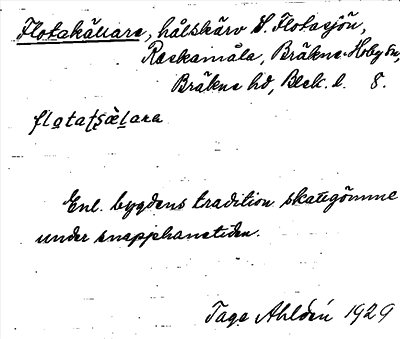 Flotakällare, hålskärv S. Flotasjön,
Raskamåla, Bräkne-Hoby sn,
Bräkne hd, Blek. l. 8.
flo̱tatʃæ̀ḻara
Enl. bygdens tradition skattgömme
under snapphanetiden.
Tage Ahldén 1929